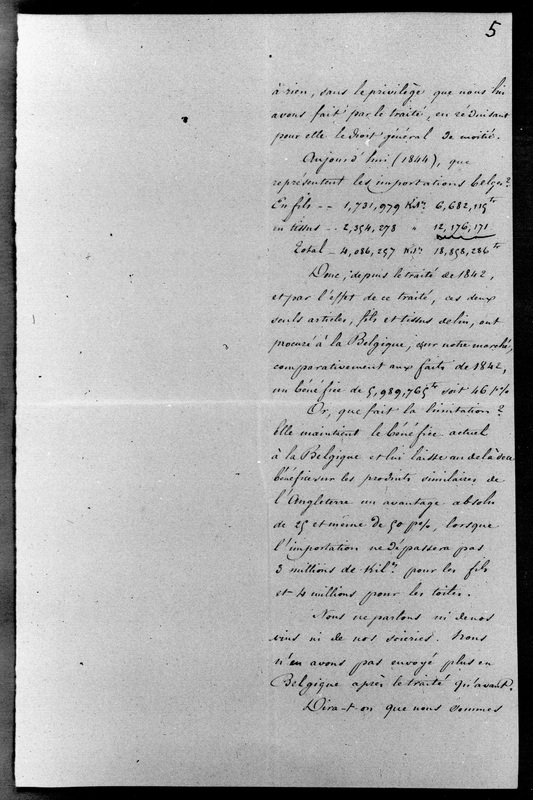 5
à rien, sans le privilège que nous lui
avons fait par le traité, en réduisant
pour elle le droit général de moitié.
Aujourd'hui (1844), que
représentent les importations belges?
En fils -- 1,731,979 Kil. 6,682,115 fr
en tissus -- 2,354,278 " 12,176,171
Total - 4,086,257 Kil. 18,858,286 fr
Donc, depuis le traité de 1842,
et par l'effet de ce traité, ces deux
seuls articles, fils et tissus de lin, ont
procuré à la Belgique, sur notre marché,
comparativement aux faits de 1842,
un bénéfice de 5,989,765 fr soit 46 p%
Or, que fait la limitation?
Elle maintient le bénéfice actuel
à la Belgique et lui laisse au delà de ce
bénéfice sur les produits similaires de
l'Angleterre un avantage absolu
de 25 et même de 50 p%, lorsque
l'importation ne dépassera pas
3 millions de Kil. pour les fils
et 4 millions pour les toiles.
Nous ne parlons ni de nos
vins ni de nos soieries. Nous
n'en avons pas envoyé plus en
Belgique après le traité qu'avant.
Dira-t-on que nous sommes